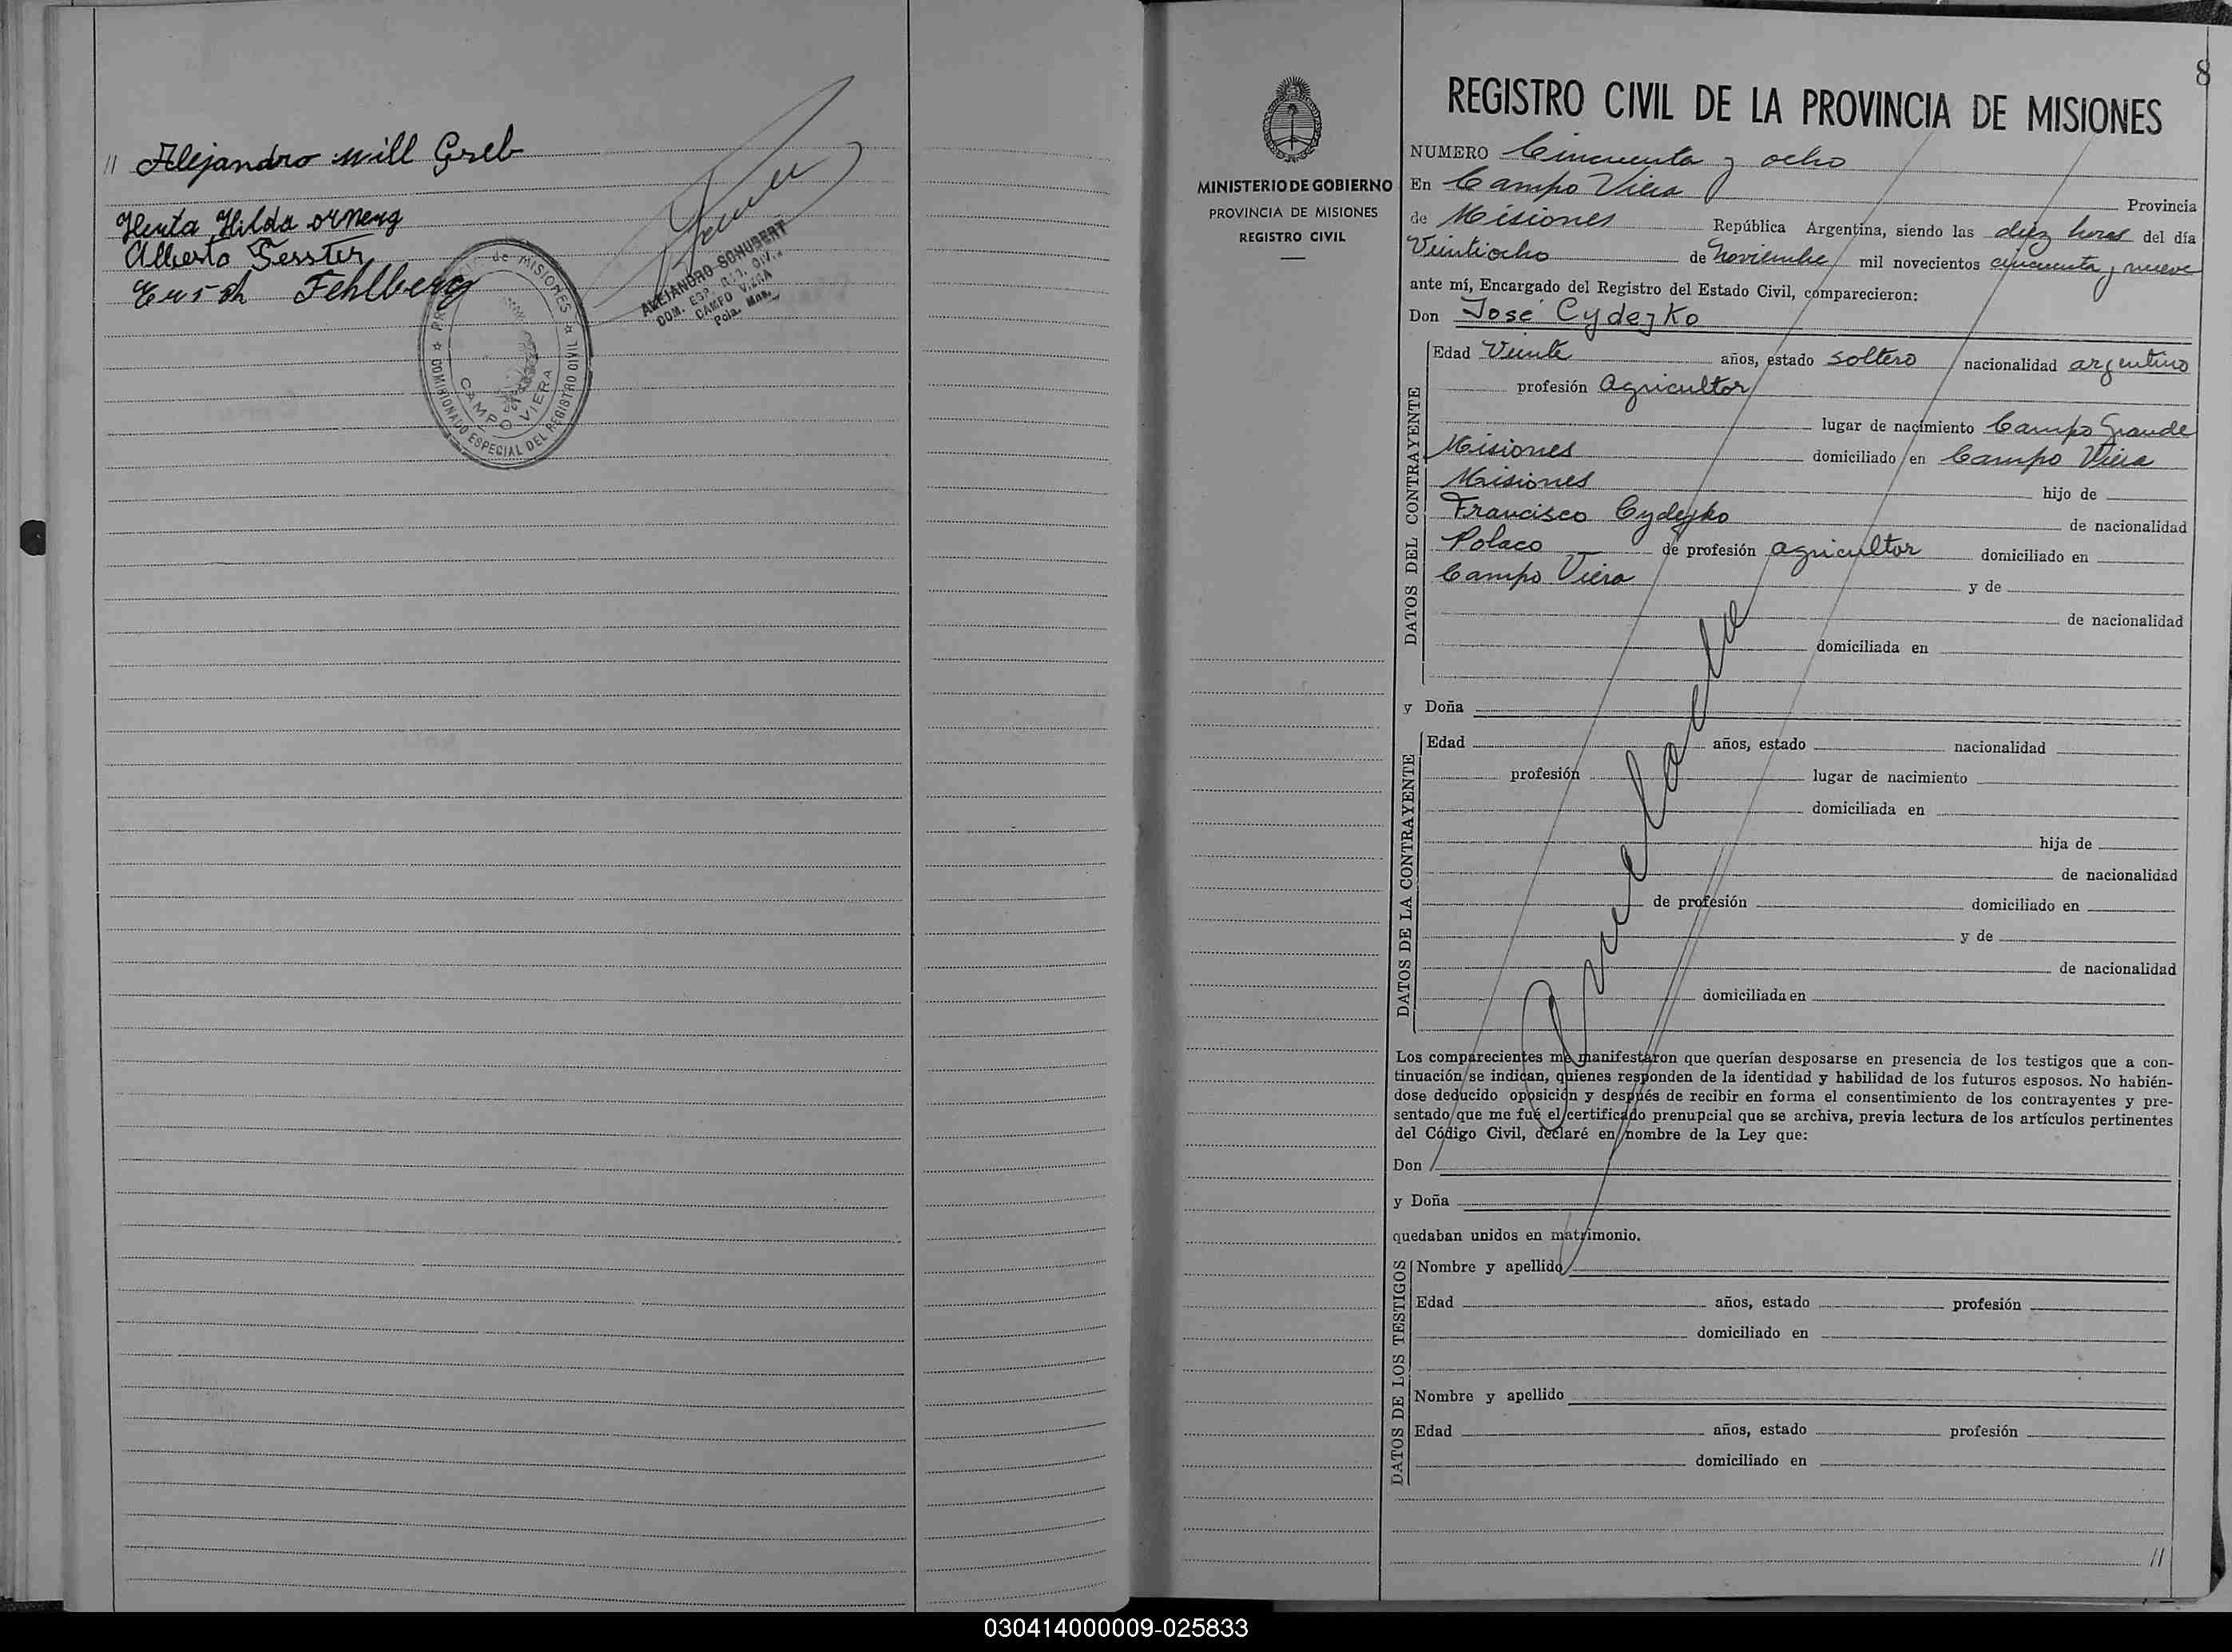 // Alejandro Will Greb
Herta Hilda
Alberto Gesster
Erich Fehlberg
PROVINCIA de MISIONES
COMISIONADO ESPECIAL DEL REGISTRO CIVIL
CAMPO VIERA
ALEJANDRO SCHUBERT
COM. ESP. CIV.
CAMPO VIERA
Pcia. Mnes.
8
MINISTERIO DE GOBIERNO
PROVINCIA DE MISIONES
REGISTRO CIVIL
REGISTRO CIVIL DE LA PROVINCIA DE MISIONES
NUMERO Cincuenta y ocho
En Campo Viera Provincia
de Misiones República Argentina, siendo las diez horas del día
Veintiocho de Noviembre mil novecientos cincuenta y nueve
ante mí, Encargado del Registro del Estado Civil, comparecieron:
Don José Cydejko
DATOS DEL CONTRAYENTE
Edad Veinte años, estado soltero nacionalidad argentino
profesión Agricultor
lugar de nacimiento Campo Grande
Misiones domiciliado en Campo Viera
Misiones hijo de
Francisco Cydejko de nacionalidad
Polaco de profesión agricultor domiciliado en
Campo Viera y de
de nacionalidad
domiciliada en
y Doña
DATOS DE LA CONTRAYENTE
Edad años, estado nacionalidad
profesión lugar de nacimiento
domiciliada en
hija de
de nacionalidad
de profesión domiciliado en
y de
de nacionalidad
domiciliada en
Los comparecientes me manifestaron que querían desposarse en presencia de los testigos que a con-
tinuación se indican, quienes responden de la identidad y habilidad de los futuros esposos. No habién-
dose deducido oposición y después de recibir en forma el consentimiento de los contrayentes y pre-
sentado que me fué el certificado prenupcial que se archiva, previa lectura de los artículos pertinentes
del Código Civil, declaré en nombre de la Ley que:
Don
y Doña
quedaban unidos en matrimonio.
DATOS DE LOS TESTIGOS
Nombre y apellido
Edad años, estado profesión
domiciliado en
Nombre y apellido
Edad años, estado profesión
domiciliado en
//
030414000009-025833